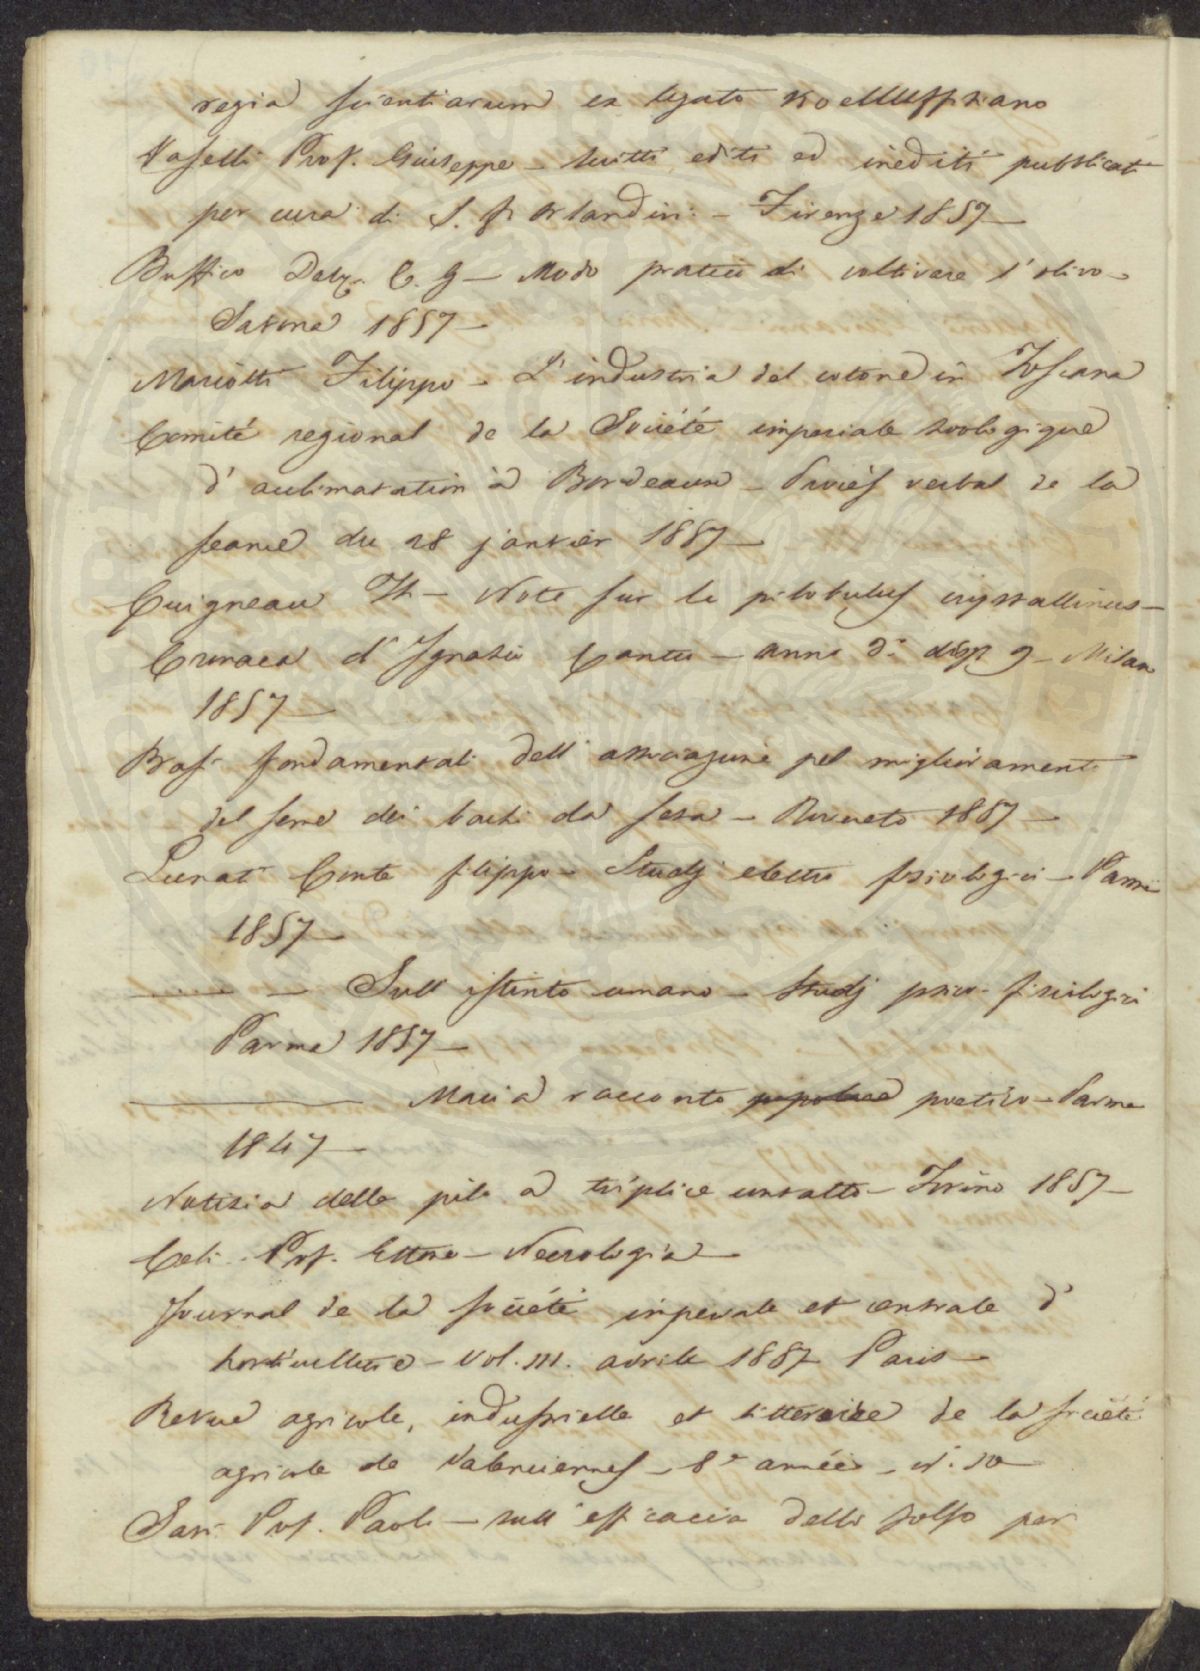 regia scientiarum ex legato Koellleffsiano
Vaselli Prof. Giuseppe - Scritti editi ed inediti pubblicati
per cura di S. Fr Orlandini - Firenze 1857 -
Buffico C. G - Modo pratico di coltivare l'olivo -
Savona 1857 -
Mariotti Filippo - L'industria del cotone in Toscana
Comité regional de la Société imperiale zoologique
d'aclimatation à Bordeaux - Procés verbal de la
seance du 28 janvier 1857 -
Cuigneau Th - Note sur le pilobulus crystallinus -
Cronaca d'Ignazio Cantu - anno 3° disp 9 - Milano
1857 -
Basi fondamentali dell'associazione pel miglioramento
del seme dei bachi da seta - Rovereto 1857 -
Lunati Conte filippo - Studj elettro fisiologici - Parma
1857 -
- Sull istinto umano - Studj psico-fisiologici
Parma 1857 -
Maria racconto popolare poetico - Parma
1847 -
Notizia della pila a triplice contatto - Torino 1857 -
Celi Prof. Ettore - Necrologia -
Journal de la société imperiale et centrale d'
horticulture - Vol. III. avrile 1857 Paris -
Revue agricole, industrielle et litteraire de la société
agricole de Valenciennes - 8e année - n°. 10 -
Savi Prof. Paolo - sull'efficacia dello solfo per